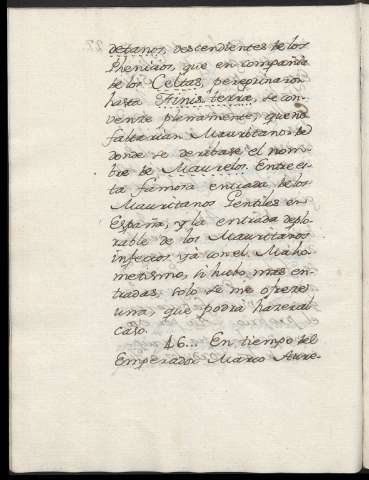 detanos, descendientes de los
Phenicios, que en compañia
de los Celtas, peregrinaron
hasta Finis terræ, se con-
vence plenamente, que no
faltarian Mauritanos de
donde se deribase el nom-
bre de Maurelos. Entre es-
ta famosa entrada de los
Mauritanos Gentiles en
España, y la entrada deplo-
rable de los Mauritanos
infectos ya con el Maho-
metismo, si hubo mas en-
tradas, solo se me ofreze
una, que podrà hazer al
caso.
46... En tiempo del
Emperador Marco Aure-